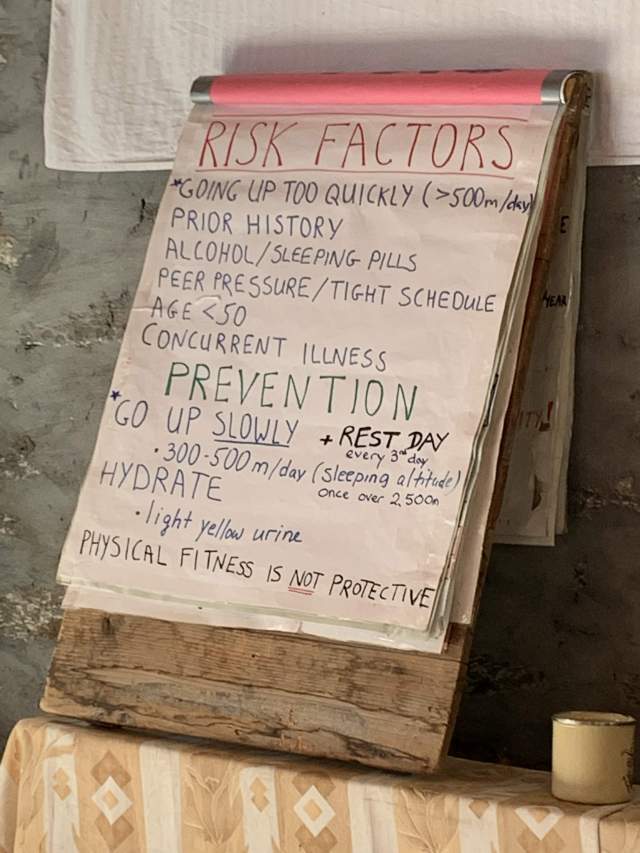 RISK FACTORS
*GOING UP TOO QUICKLY (>500m/day)
PRIOR HISTORY
ALCOHOL/SLEEPING PILLS
PEER PRESSURE/TIGHT SCHEDULE
AGE <50
CONCURRENT ILLNESS
PREVENTION
*GO UP SLOWLY + REST DAY
every 3rd day
•300-500m/day (sleeping altitude)
once over 2,500m
HYDRATE
•light yellow urine
PHYSICAL FITNESS IS NOT PROTECTIVE